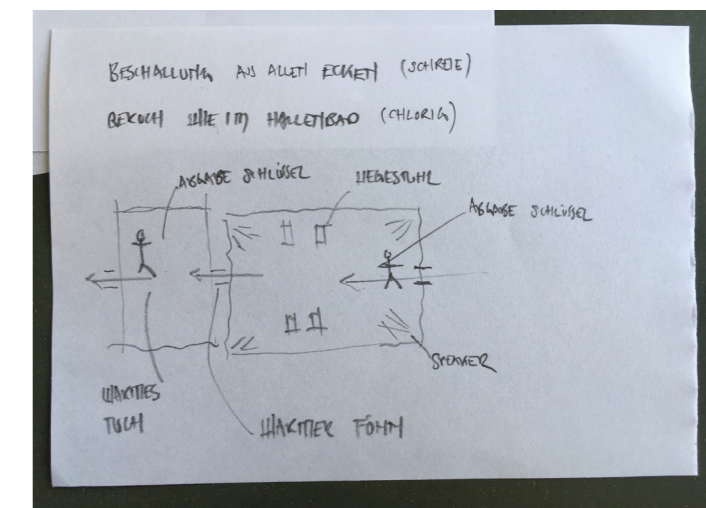 BESCHALLUNG AUS ALLEN ECKEN (SCHREIE)
GERUCH WIE IM HALLENBAD (CHLORIG)
ABGABE SCHLÜSSEL
LIEGESTUHL
ABGABE SCHLÜSSEL
SPEAKER
WARMES
TUCH
WARMER FÖHN